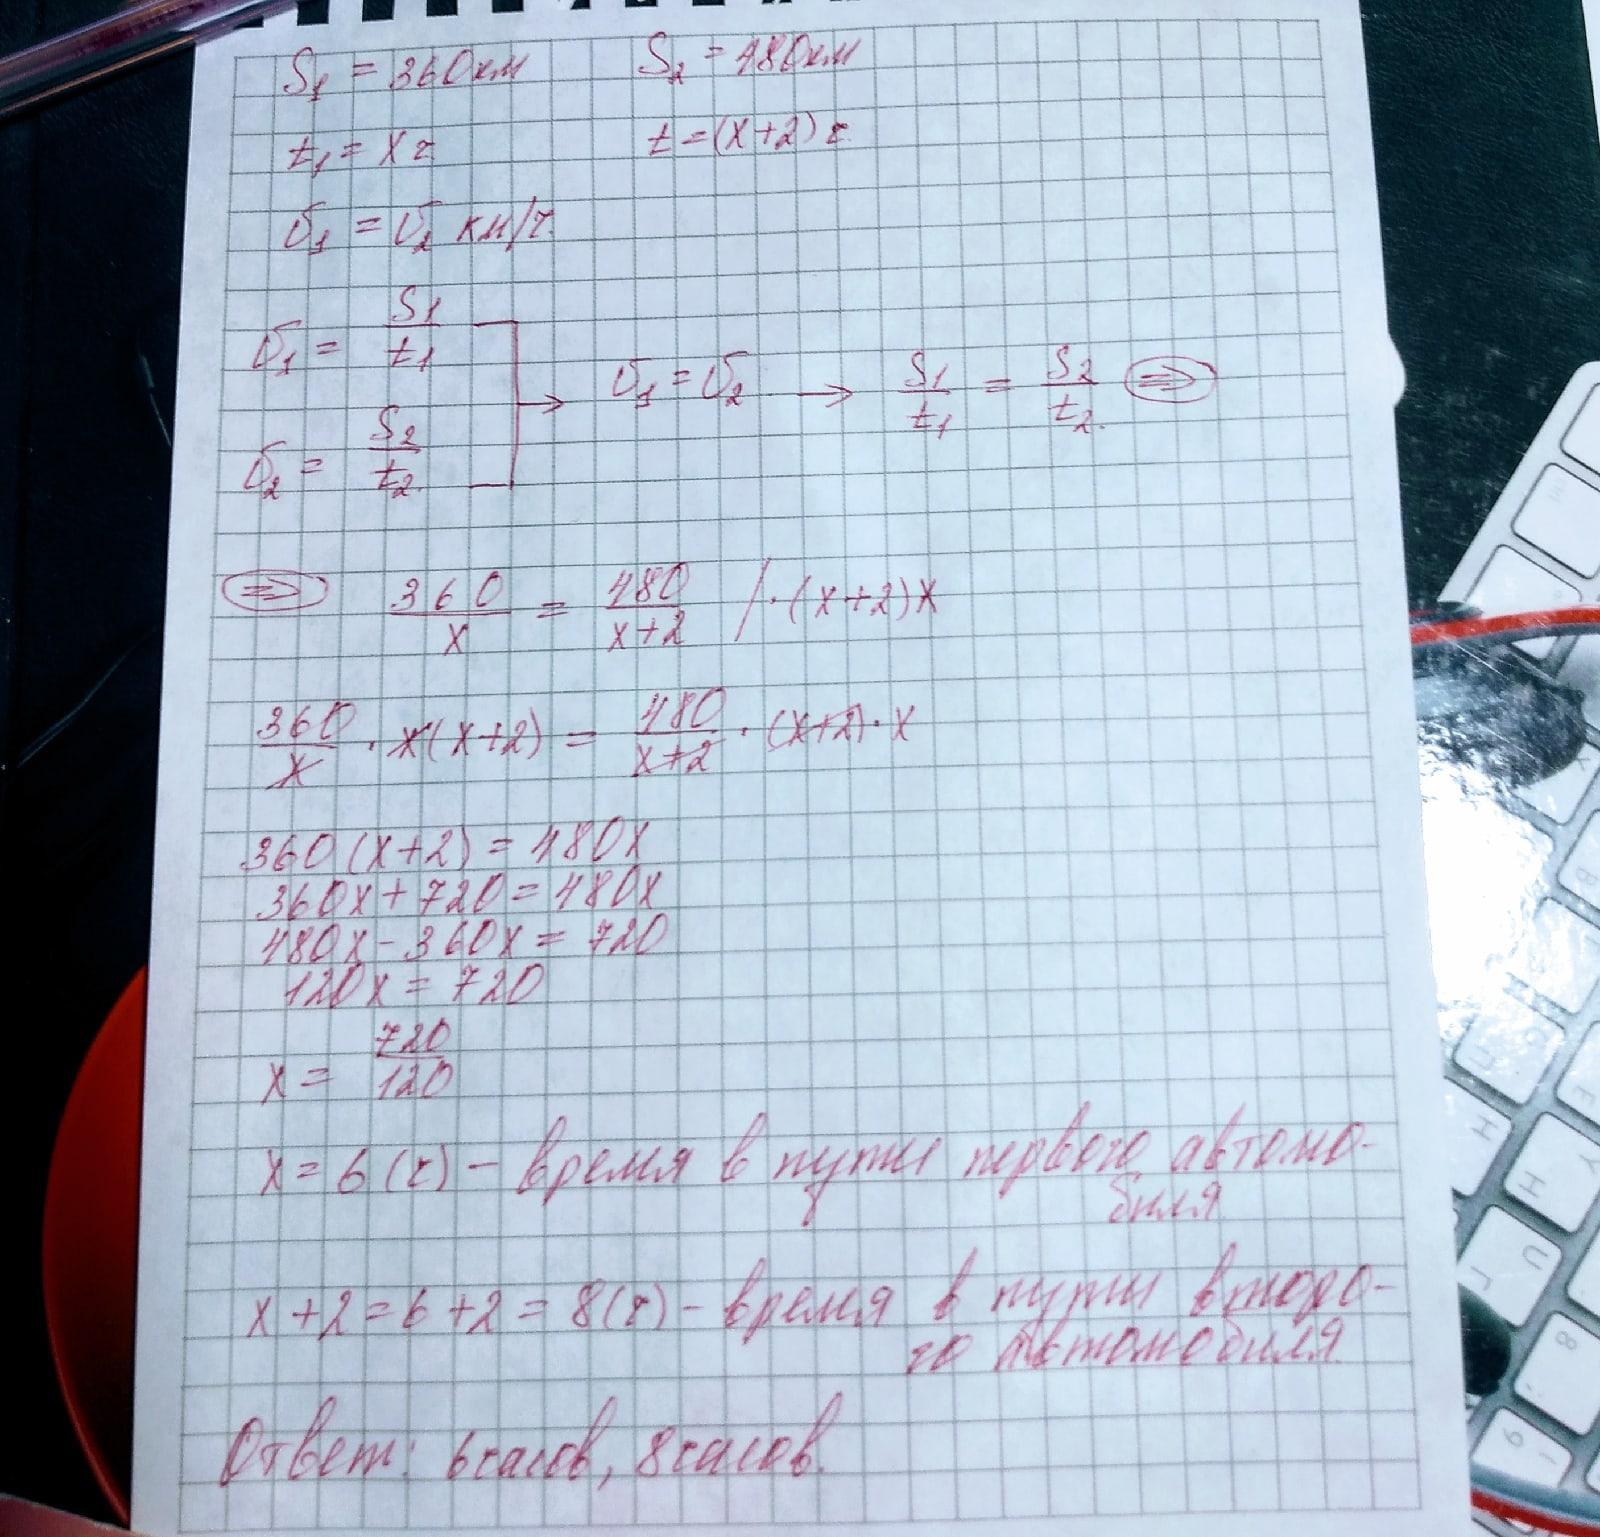 S₁ = 360км S₂ = 480км
t₁ = x ч t = (x+2) ч.
v₁ = v₂ км/ч.
v₁ = S₁/t₁
v₁ = v₂ → S₁/t₁ = S₂/t₂. ⇒
v₂ = S₂/t₂.
⇒ 360/x = 480/x+2 / · (x+2)x
360/x · x(x+2) = 480/x+2 · (x+2) · x
360(x+2) = 480x
360x + 720 = 480x
480x - 360x = 720
120x = 720
x = 720/120
x = 6 (ч) - время в пути первого автомо-
биля
x + 2 = 6 + 2 = 8 (ч) - время в пути второ-
го автомобиля.
Ответ: 6 часов, 8 часов.